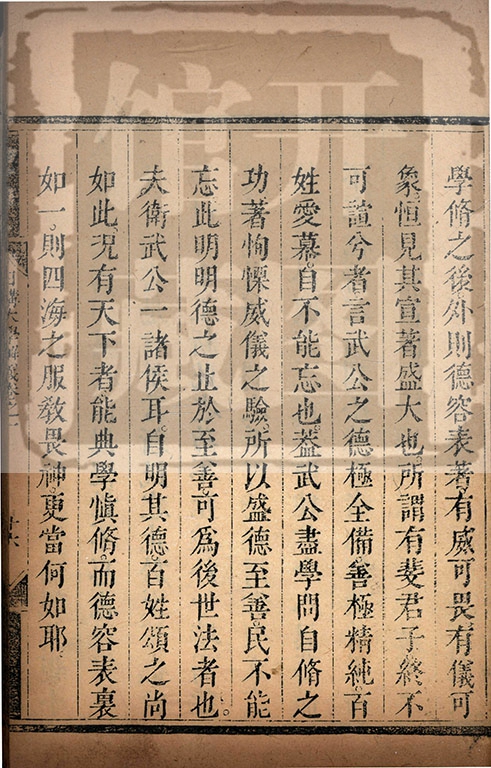 學脩之後外則德容表著有威可畏有儀可
象恒見其宣著盛大也所謂有斐君子終不
可諠兮者言武公之德極全備善極精純百
姓愛慕自不能忘也葢武公盡學問自脩之
功著恂慄威儀之驗所以盛德至善民不能
忘此明明德之止於至善可爲後世法者也
夫衛武公一諸侯耳自明其德百姓頌之尚
如此況有天下者能典學愼脩而德容表裏
如一則四海之服敎畏神更當何如耶